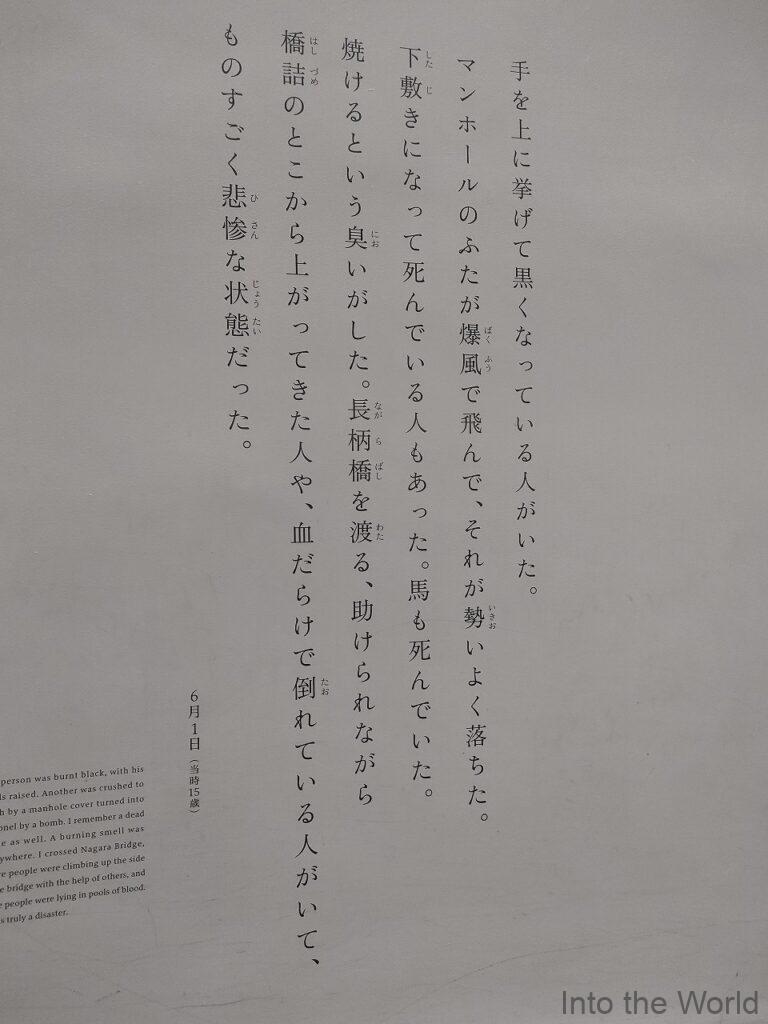 手を上に挙げて黒くなっている人がいた。
マンホールのふたが爆風で飛んで、それが勢いよく落ちた。
下敷きになって死んでいる人もあった。馬も死んでいた。
焼けるという臭いがした。長柄橋を渡る、助けられながら
橋詰のとこから上がってきた人や、血だらけで倒れている人がいて、
ものすごく悲惨な状態だった。
6月1日（当時15歳）
person was burnt black, with his
raised. Another was crushed to
by a manhole cover turned into
by a bomb. I remember a dead
as well. A burning smell was
I crossed Nagara Bridge,
people were climbing up the side
bridge with the help of others, and
people were lying in pools of blood.
truly a disaster.
Into the World